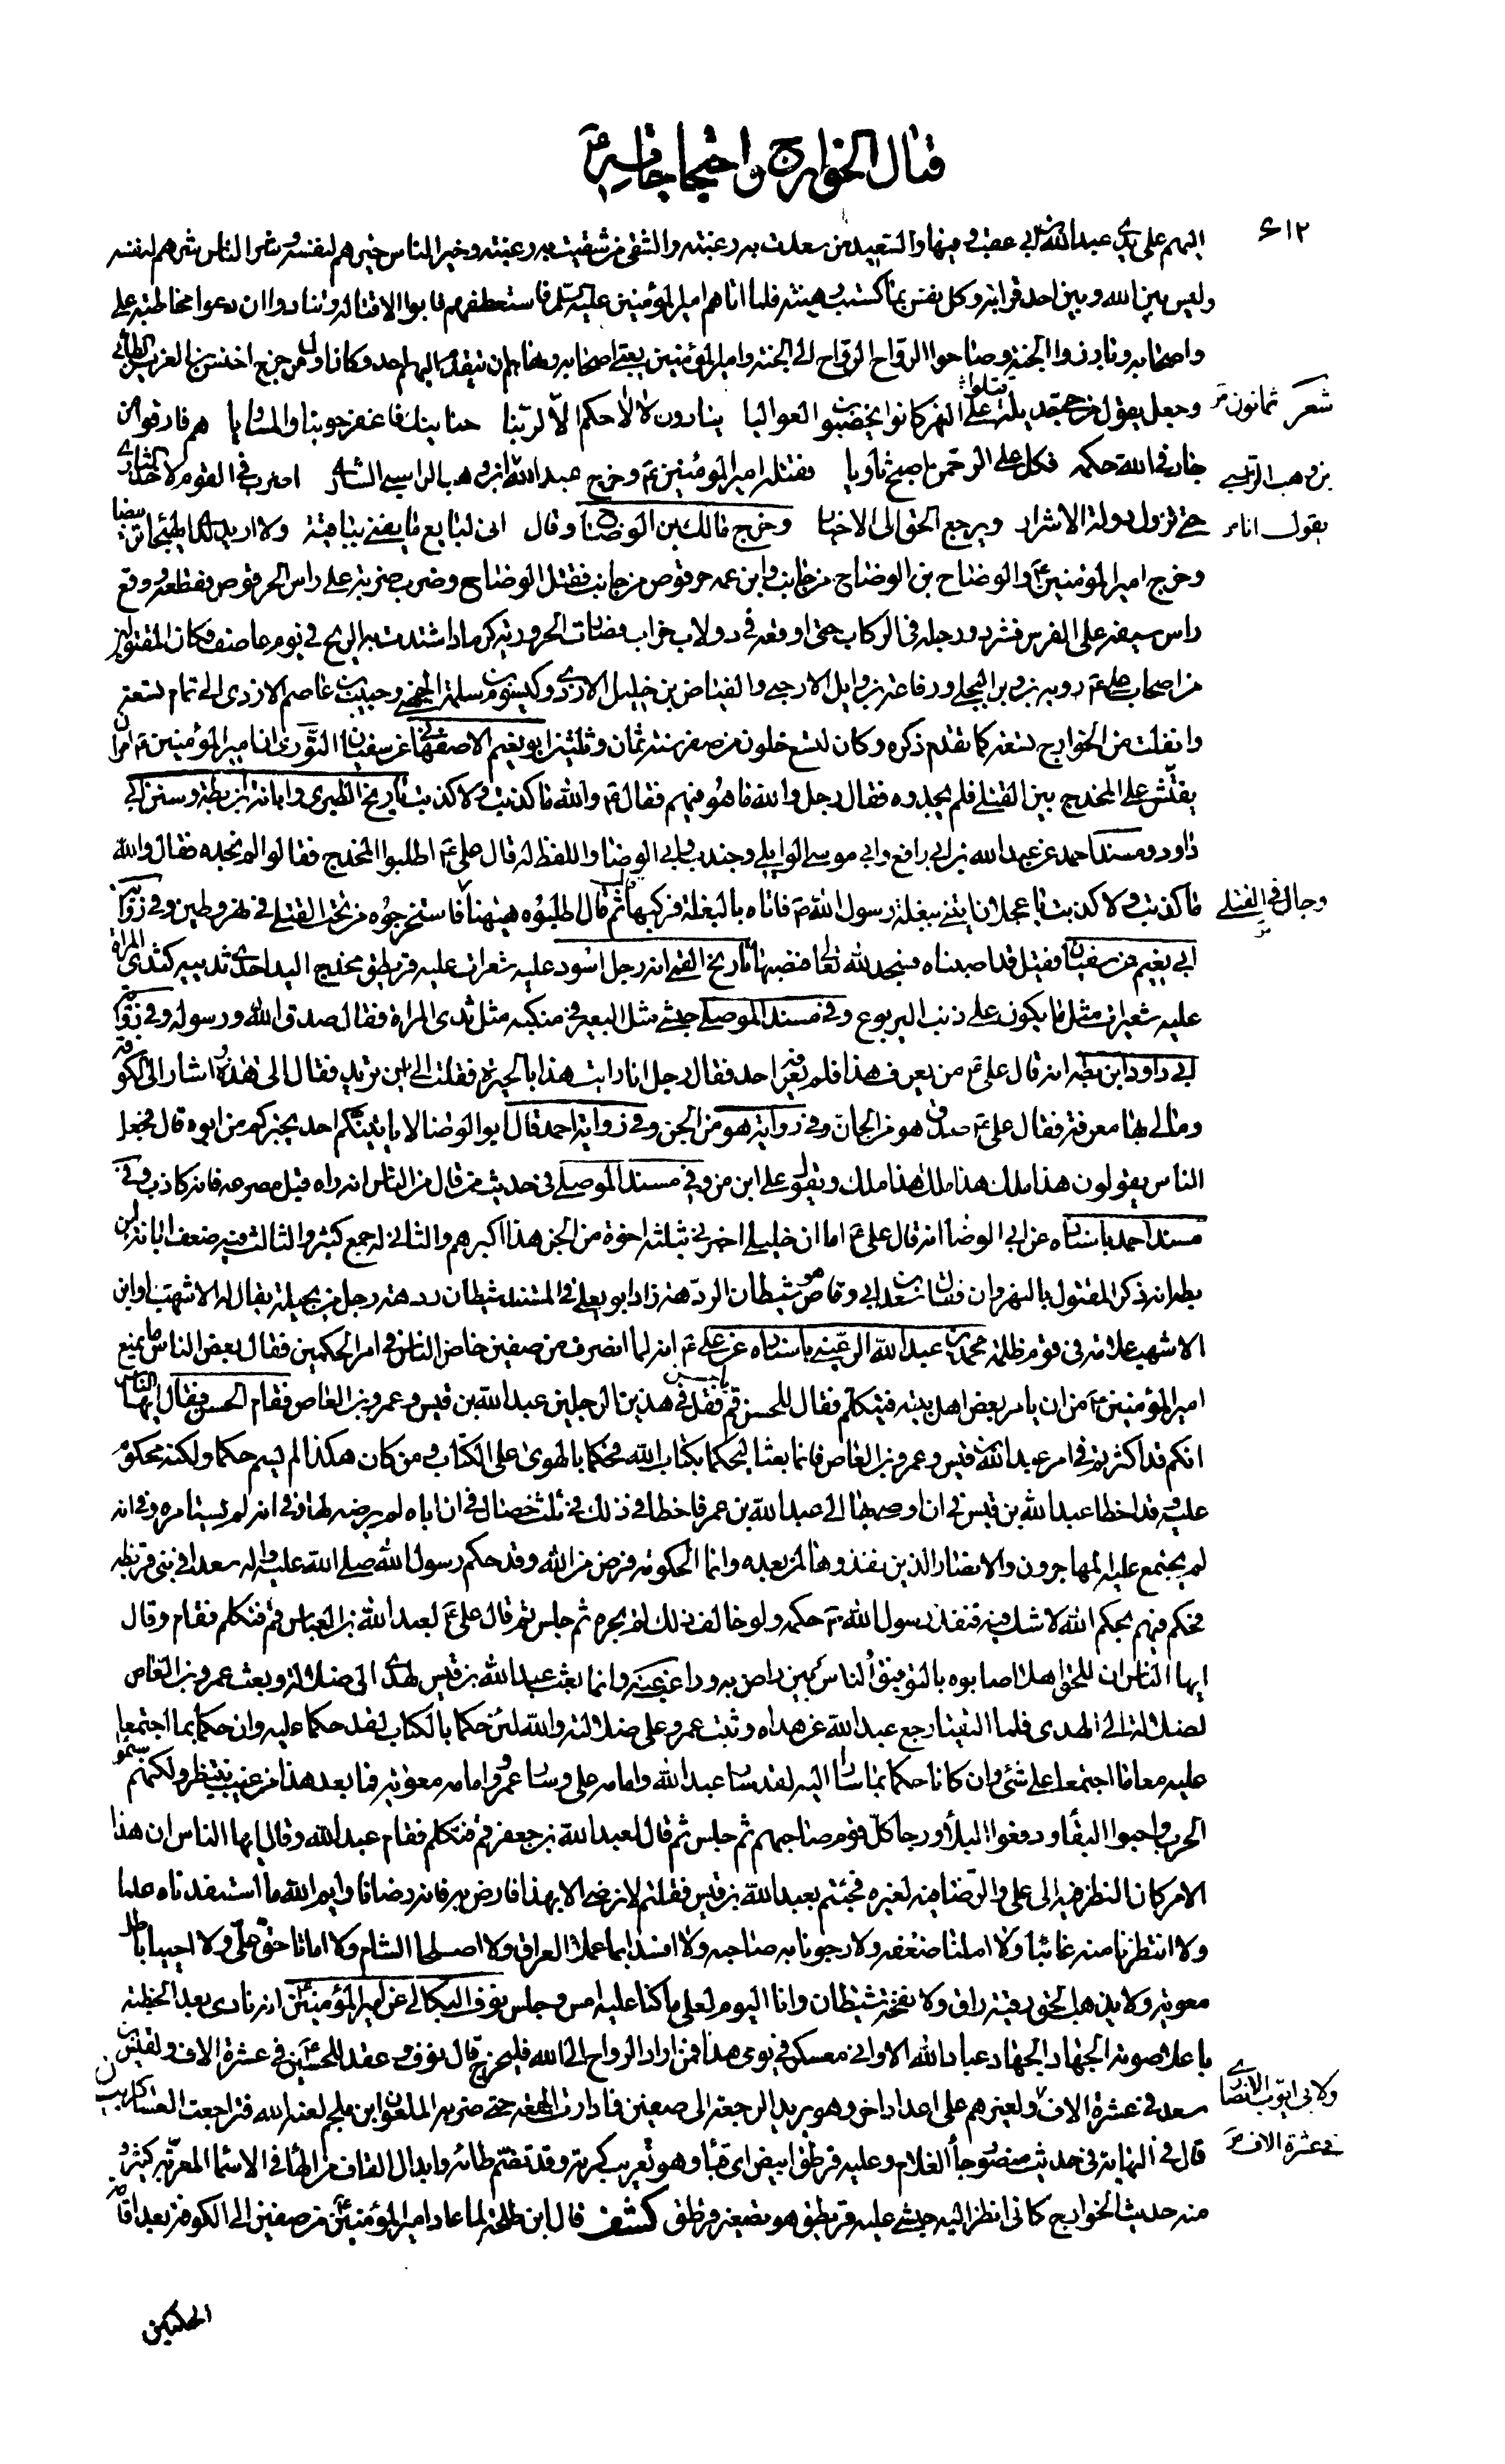 قتال الخوارج واحتجاجاته ع
٦١٢
اليهم على يدي عبدالله بن ابي عقب وفيها والسعيد من سعدت به رعيته والشقي من شقيت به رعيته وخير الناس خيرهم لنفسه وشر الناس شرهم لنفسه
وليس بين الله وبين احد قرابة وكل نفس بما كسبت رهينة فلما اتاهم امير المؤمنين عليه السلم فاستعطفهم فابوا الا قتاله وتنادوا ان دعوا مخاطبة علي
واصحابه وبادروا الجنة وصاحوا الرواح الرواح الى الجنة وامير المؤمنين يعبي اصحابه ونهاهم ان يتقدم اليهم احد وكان اول من خرج اخنس بن العزيز الطائي
وجعل يقول ثمانون من حي جديلة قتلوا على النهر كانوا يخضبون العواليا ينادون لا لا حكم الا لربنا حنانيك فاغفر حوبنا والمساويا هم فارقوا من
شعر ثمانون
جار في الله حكمه فكل على الرحمن اصبح ثاويا فقتله امير المؤمنين ع وخرج عبدالله بن وهب الراسبي الشاري اضرب في القوم لاخذ الثار
بن وهب الراسبي
حتى تزول دولة الاشرار ويرجع الحق الى الاخيار وخرج مالك بن الوضاح وقال اني لبايع ما يفنى بباقية ولا اريد لدى الهيجاء تربيضا
يقول انا
وخرج امير المؤمنين ع والوضاح بن الوضاح من جانب وابن عمه حرقوص من جانب فقتل الوضاح وضرب ضربة على راس الحرقوص فقطعه ووقع
راس سيفه على الفرس فشرد ورجله في الركاب حتى اوقعه في دولاب خراب فصارت الحرورية كرماد اشتدت به الريح في يوم عاصف فكان المقتولون
من اصحاب علي ع روبة بن وبر البجلي ورفاعة بن وايل الارحبي والفياض بن خليل الازدي وكيسوم بن سلمة الجهني وحبيب بن عاصم الازدي الى تمام تسعة
وانفلت من الخوارج تسعة كما تقدم ذكره وكان لتسع خلون من صفر سنة ثمان وثلثين ابو نعيم الاصفهاني عن سفيان الثوري ان امير المؤمنين ع امر ان
يفتش على المخدج بين القتلى فلم يجدوه فقال رجل والله ما هو فيهم فقال ع والله ما كذبت ولا كذبت تاريخ الطبري وابانة ابن بطة وسنن ابي
داود ومسند احمد عن عبدالله بن ابي رافع وابي موسى الوايلي وجندب وابي الوضاء واللفظ له قال علي ع اطلبوا المخدج فقالوا لم نجده فقال والله
ما كذبت ولا كذبت يا عجلان ايتني ببغلة رسول الله ص فاتاه بالبغلة فركبها ثم قال اطلبوه ههنا فاستخرجوه من تحت القتلى في نهر وطين وفي رواية
وجال في القتلى
ابي نعيم عن سفيان فقيل قد اصبناه فسجد لله تعالى فنصبها تاريخ القمي انه رجل اسود عليه شعرات عليه قريطق مخدج اليد احدى ثدييه كثدي المراة
عليه شعيرات مثل ما يكون على ذنب اليربوع وفي مسند الموصلي حبشي مثل البعير في منكبه مثل ثدي المراة فقال صدق الله ورسوله وفي رواية
ابي داود ابن بطة انه قال علي ع من يعرف هذا فلم يعرفه احد فقال رجل انا رايت هذا بالحيرة فقلت الى اين تريد فقال الى هذه واشار الى الكوفة
ومالي بها معرفة فقال علي ع صدق هو من الجان وفي رواية هو من الجن وفي رواية احمد قال ابو الوضا لا ياتينكم احد يخبركم من ابوه قال فجعل
الناس يقولون هذا ملك هذا ملك هذا ملك ويقول علي ابن من وفي مسند الموصلي في حديث من قال من الناس انه راه قبل مصرعه فانه كاذب وفي
مسند احمد باسناده عن ابي الوضا انه قال علي ع اما ان خليلي اخبرني بثلثة اخوة من الجن هذا اكبرهم والثاني له جمع كثير والثالث فيه ضعف ابانة ابن
بطة انه ذكر المقتول بالنهروان فقال سعد بن ابي وقاص هو شيطان الردهة زاد ابو يعلى في المسند شيطان ردهة رجل من بجيلة يقال له الاشهب او ابن
الاشهب علامة في قوم ظلمة محمد بن عبدالله الرعيني باسناده عن علي ع انه لما انصرف من صفين خاض الناس في امر الحكمين فقال بعض الناس ما يمنع
امير المؤمنين ع من ان يامر بعض اهل بيته فيتكلم فقال للحسن قم يا حسن فقل في هذين الرجلين عبدالله بن قيس وعمرو بن العاص فقام الحسن فقال ايها الناس
انكم قد اكثرتم في امر عبدالله بن قيس وعمرو بن العاص فانما بعثا ليحكما بكتاب الله فحكما بالهوى على الكتاب ومن كان هكذا لم يسم حكما ولكنه محكوم
عليه وقد اخطا عبدالله بن قيس في ان اوصى بها الى عبدالله بن عمر فاخطا في ذلك في ثلث خصال في ان اباه لم يرضه لها وفي انه لم يستامره وفي انه
لم يجتمع عليه المهاجرون والانصار الذين نفذوها لمن بعده وانما الحكومة فرض من الله وقد حكم رسول الله صلى الله عليه واله سعدا في بني قريظة
فحكم فيهم بحكم الله لا شك فيه فنفذ رسول الله ص حكمه ولو خالف ذلك لم يجره ثم جلس ثم قال علي ع لعبدالله بن العباس قم فتكلم فقام وقال
ايها الناس ان للحق اهلا اصابوه بالتوفيق والناس بين راض به وراغب عنه وانما بعث عبدالله بن قيس لهدى الى ضلالة وبعث عمرو بن العاص
لضلالة الى الهدى فلما التقيا رجع عبدالله عن هداه وثبت عمرو على ضلالته والله لئن حكما بالكتاب لقد حكما عليه وان حكما بما اجتمعا
عليه معا ما اجتمعا على شئ وان كانا حكما بما سارا اليه لقد سار عبدالله وامامه علي وسار عمرو وامامه معوية فما بعد هذا من غيب ينتظر ولكنهم سئموا
الحرب واحبوا البقاء ودفعوا البلاء ورجا كل قوم صاحبهم ثم جلس ثم قال لعبدالله بن جعفر قم فتكلم فقام عبدالله وقال ايها الناس ان هذا
الامر كان النظر فيه الى علي والرضا فيه لغيره فجئتم بعبدالله بن قيس فقلتم لا نرضى الا بهذا فارض به فانه رضانا وايم الله ما استفدناه علما
ولا انتظرنا منه غائبا ولا املنا ضعفه ولا رجونا به صاحبه ولا افسدا بما عملا العراق ولا اصلحا الشام ولا اماتا حق علي ولا احييا باطل
معوية ولا يذهب الحق رقية راق ولا نفخة شيطان وانا اليوم لعلى ما كنا عليه امس وجلس نوف البكالي عن امير المؤمنين ع انه نادى بعد الخطبة
باعلا صوته الجهاد الجهاد عباد الله الا واني معسكر في يومي هذا فمن اراد الرواح الى الله فليخرج قال نوف وعقد للحسين ع في عشرة الاف ولقيس بن
سعد في عشرة الاف ولغيرهم على اعداد اخر وهو يريد الرجعة الى صفين فما دارت الجمعة حتى ضربه الملعون ابن ملجم لعنه الله فتراجعت العساكر بيان
ولابي ايوب الانصاري
في عشرة الاف
قال في النهاية في حديث منصور جاء الغلام وعليه قرطق ابيض اي قباء وهو تعريب كرته وقد تضم طاؤه وابدال القاف من الهاء في الاسماء المعربة كثير
منه حديث الخوارج كاني انظر اليه حبشي عليه قريطق هو تصغير قرطق كشف قال ابن طلحة لما عاد امير المؤمنين ع من صفين الى الكوفة بعد اقامة
الحكمين